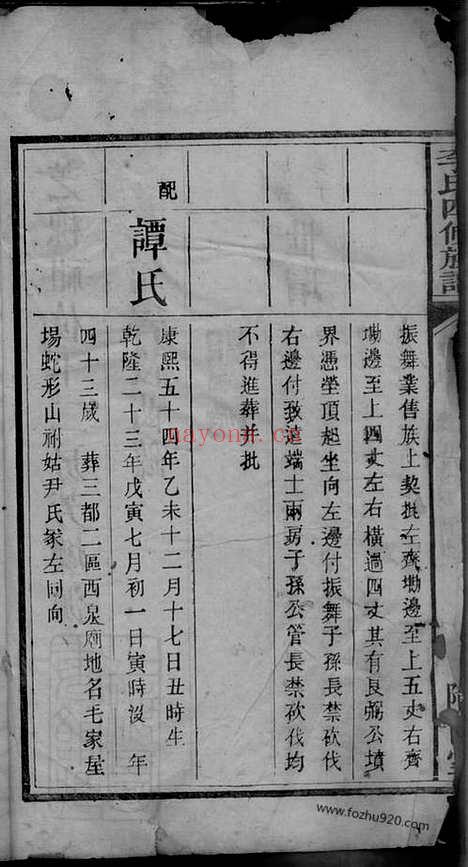 李氏四修族譜
振舞業售族上契批左齊墈邊至上五丈右齊
墈邊至上四丈左右橫過四丈其有良弼公墳
界憑塋頂起坐向左邊付振舞子孫長禁砍伐
右邊付致道端士兩房子孫公管長禁砍伐均
不得進葬并批
配
譚氏
康熙五十四年乙未十二月十七日丑時生
乾隆二十三年戊寅七月初一日寅時沒 年
四十三歲 葬三都二區西泉廟地名毛家屋
場蛇形山祔姑尹氏冢左同向
nayona.cn
www.fozhu920.com